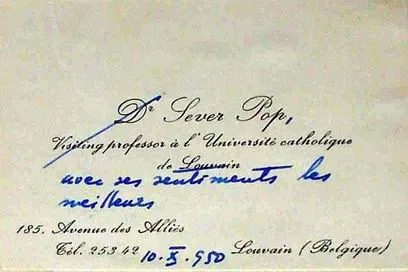 Dr Sever Pop,
Visiting professor à l'Université catholique
de Louvain
avec ses sentiments les
meilleurs
185, Avenue des Alliés
Tél. 253 42 10.X.950 Louvain (Belgique)